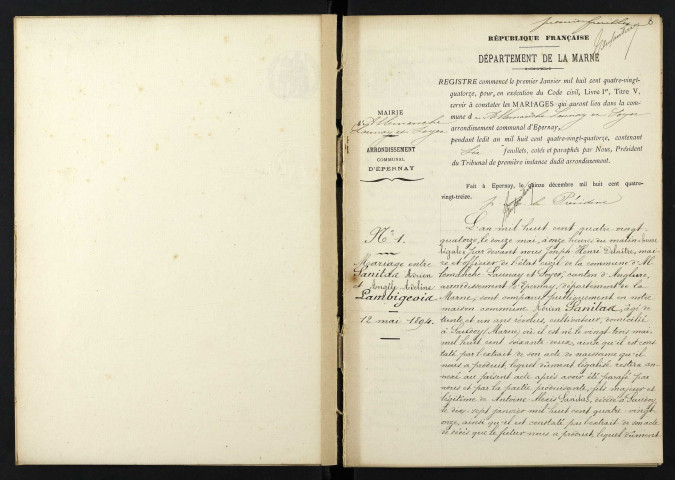 premier feuillet 6
RÉPUBLIQUE FRANÇAISE
DÉPARTEMENT DE LA MARNE
REGISTRE commencé le premier Janvier mil huit cent quatre-vingt-
quatorze, pour, en exécution du Code civil, Livre Ier, Titre V,
servir à constater les MARIAGES qui auront lieu dans la com-
mune d'Allemanche Launay et Soyer
arrondissement communal d'Epernay,
pendant ledit an mil huit cent quatre-vingt-quatorze, contenant
six feuillets, cotés et paraphés par Nous, Président
du Tribunal de première instance dudit arrondissement.
Fait à Epernay, le quinze décembre mil huit cent quatre-
vingt-treize.
le Président
MAIRIE
d'Allemanche
Launay et Soyer
ARRONDISSEMENT
COMMUNAL
D'ÉPERNAY
No 1.
Mariage entre
Sanitas Adrien
et Adeline
Lambigeois
12 mai 1894.
L'an mil huit cent quatre vingt
quatorze, le onze mai, à onze heures du matin
légales par devant nous Joseph Henri Delaitre, mai
re et officier de l'état civil de la commune d'Al
lemanche Launay et Soyer, canton d'Anglure,
arrondissement d'Epernay, département de la
Marne, sont comparus publiquement en notre
maison commune Adrien Sanitas, âgé de
trente et un ans révolus, cultivateur, domicilié
à Saudoy (Marne) où il est né le vingt trois mai
mil huit cent soixante deux, ainsi qu'il est cons
taté par l'extrait de son acte de naissance qu'il
nous a produit, lequel dûment légalisé restera an
nexé au présent acte après avoir été parafé par
nous et par la partie produisante, fils majeur et
légitime de Antoine Alexis Sanitas, décédé à Saudoy,
le dix sept janvier mil huit cent quatre vingt
onze, ainsi qu'il est constaté par l'extrait de son acte
de décès que le futur nous a produit, lequel dûment